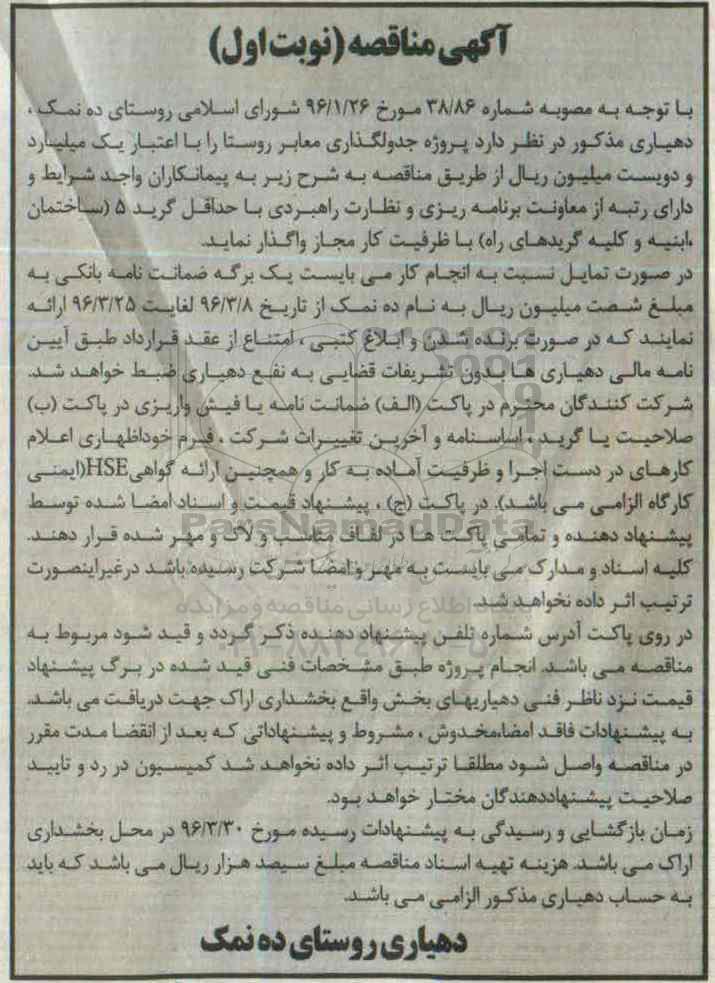 آگهی مناقصه (نوبت اول)
با توجه به مصوبه شماره ۳۸/۸۶ مورخ ۹۶/۱/۲۶ شورای اسلامی روستای ده نمک ،
دهیاری مذکور در نظر دارد پروژه جدولگذاری معابر روستا را با اعتبار یک میلیارد
و دویست میلیون ریال از طریق مناقصه به شرح زیر به پیمانکاران واجد شرایط و
دارای رتبه از معاونت برنامه ریزی و نظارت راهبردی با حداقل گرید ۵ (ساختمان
،ابنیه و کلیه گریدهای راه) با ظرفیت کار مجاز واگذار نماید.
در صورت تمایل نسبت به انجام کار می بایست یک برگه ضمانت نامه بانکی به
مبلغ شصت میلیون ریال به نام ده نمک از تاریخ ۹۶/۳/۸ لغایت ۹۶/۳/۲۵ ارائه
نمایند که در صورت برنده شدن و ابلاغ کتبی ، امتناع از عقد قرارداد طبق آیین
نامه مالی دهیاری ها بدون تشریفات قضایی به نفع دهیاری ضبط خواهد شد.
شرکت کنندگان محترم در پاکت (الف) ضمانت نامه یا فیش واریزی در پاکت (ب)
صلاحیت یا گرید ، اساسنامه و آخرین تغییرات شرکت ، فرم خوداظهاری اعلام
کارهای در دست اجرا و ظرفیت آماده به کار و همچنین ارائه گواهی HSE(ایمنی
کارگاه الزامی می باشد). در پاکت (ج) ، پیشنهاد قیمت و اسناد امضا شده توسط
پیشنهاد دهنده و تمامی پاکت ها در لفاف مناسب و لاک و مهر شده قرار دهند.
کلیه اسناد و مدارک می بایست به مهر و امضا شرکت رسیده باشد درغیراینصورت
ترتیب اثر داده نخواهد شد.
در روی پاکت آدرس شماره تلفن پیشنهاد دهنده ذکر گردد و قید شود مربوط به
مناقصه می باشد. انجام پروژه طبق مشخصات فنی قید شده در برگ پیشنهاد
قیمت نزد ناظر فنی دهیاریهای بخش واقع بخشداری اراک جهت دریافت می باشد.
به پیشنهادات فاقد امضا،مخدوش ، مشروط و پیشنهاداتی که بعد از انقضا مدت مقرر
در مناقصه واصل شود مطلقا ترتیب اثر داده نخواهد شد کمیسیون در رد و تایید
صلاحیت پیشنهاددهندگان مختار خواهد بود.
زمان بازگشایی و رسیدگی به پیشنهادات رسیده مورخ ۹۶/۳/۳۰ در محل بخشداری
اراک می باشد. هزینه تهیه اسناد مناقصه مبلغ سیصد هزار ریال می باشد که باید
به حساب دهیاری مذکور الزامی می باشد.
دهیاری روستای ده نمک
ParsNamadData
اطلاع رسانی مناقصه و مزایده